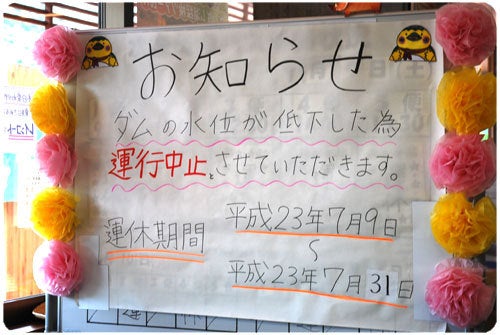 お知らせ
ダムの水位が低下した為
運行中止とさせていただきます。
運休期間
平成23年7月9日
～
平成23年7月31日